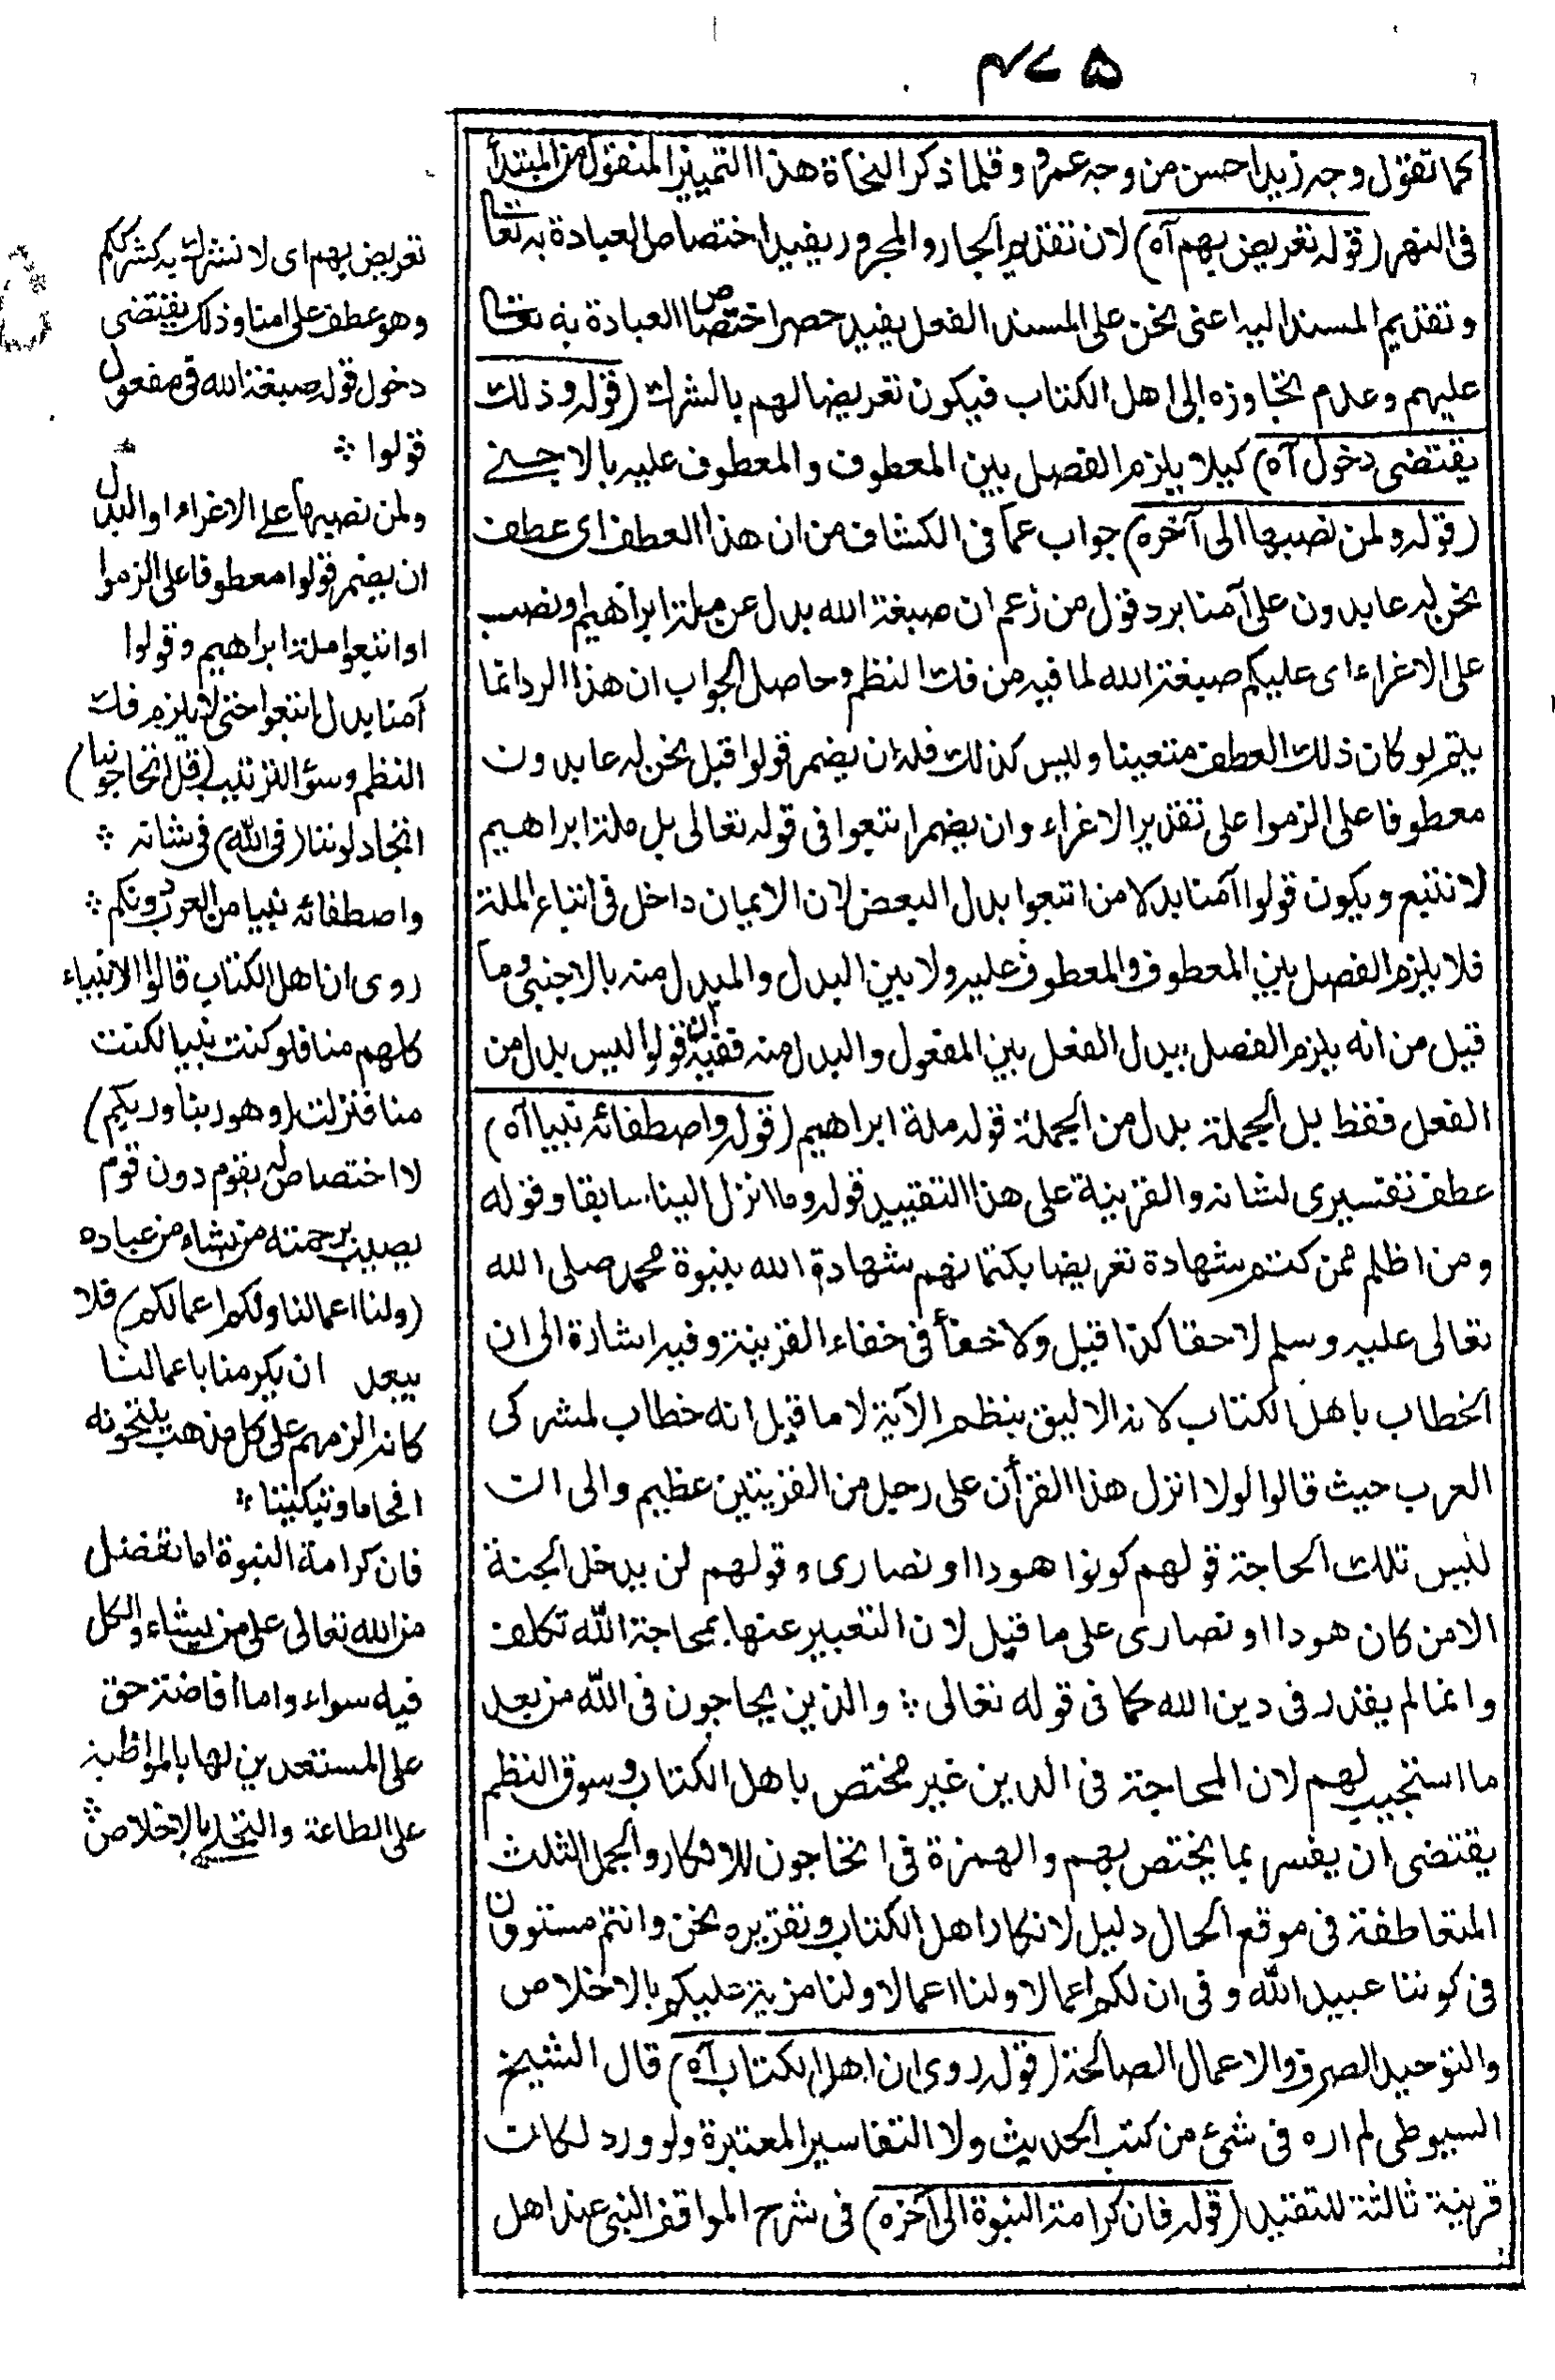 ۴۷۵
كما تقول وجه زيد احسن من وجه عمرو وقلما ذكر النحاة هذا التمييز المنقول من المبتدأ
فى النهر (قوله تعريض بهم آه) لان تقديم الجار والمجرور يفيد اختصاص العبادة به تعالى
وتقديم المسند اليه اعنى نحن على المسند الفعل يفيد حصر اختصاص العبادة به تعالى
عليهم وعدم تجاوزه الى اهل الكتاب فيكون تعريضا لهم بالشرك (قوله وذلك
يقتضى دخول آه) كيلا يلزم الفصل بين المعطوف والمعطوف عليه بالاجنبى
(قوله ولمن نصبها الى آخره) جواب عما فى الكشاف من ان هذا العطف اى عطف
نحن له عابدون على آمنا يرد قول من زعم ان صبغة الله بدل عن ملة ابراهيم او نصب
على الاغراء اى عليكم صبغة الله لما فيه من فك النظم وحاصل الجواب ان هذا الرد انما
يتم لو كان ذلك العطف متعينا وليس كذلك فله ان يضمر قولوا قبل نحن له عابدون
معطوفا على الزموا على تقدير الاغراء وان يضمر اتبعوا فى قوله تعالى بل ملة ابراهيم
لا نتبع ويكون قولوا آمنا بدلا من اتبعوا بدل البعض لان الايمان داخل فى اتباع الملة
فلا يلزم الفصل بين المعطوف والمعطوف عليه ولا بين البدل والمبدل منه بالاجنبى وما
قيل من انه يلزم الفصل ببدل الفعل بين المفعول والبدل منه ففيه ان قولوا ليس بدل من
الفعل فقط بل الجملة بدل من الجملة قوله ملة ابراهيم (قوله واصطفائه نبيا آه)
عطف تفسيرى لشانه والقرينة على هذا التقييد قوله وما انزل الينا سابقا وقوله
ومن اظلم ممن كتم شهادة تعريضا بكتمانهم شهادة الله بنبوة محمد صلى الله
تعالى عليه وسلم لاحقا كذا قيل ولا خفأ فى خفاء القرينة وفيه اشارة الى ان
الخطاب باهل الكتاب لانه الاليق بنظم الآية لا ما قيل انه خطاب لمشركى
العرب حيث قالوا لولا انزل هذا القرأن على رجل من القريتين عظيم والى ان
ليس تلك الحاجة قولهم كونوا هودا او نصارى وقولهم لن يدخل الجنة
الا من كان هودا او نصارى على ما قيل لان التعبير عنها بمحاجة الله تكلف
وانما لم يقدر فى دين الله كما فى قوله تعالى ؞ والذين يحاجون فى الله من بعد
ما استجيب لهم لان المحاجة فى الدين غير مختص باهل الكتاب وسوق النظم
يقتضى ان يفسر بما يختص بهم والهمزة فى اتحاجون للانكار والجمل الثلث
المتعاطفة فى موقع الحال دليل لانكار اهل الكتاب وتقريره نحن وانتم مستوون
فى كوننا عبيد الله وفى ان لكم اعمالا ولنا اعمالا ولنا مزية عليكم بالاخلاص
والتوحيد الصرف والاعمال الصالحة (قوله روى ان اهل الكتاب آه) قال الشيخ
السيوطى لم اره فى شئ من كتب الحديث ولا التفاسير المعتبرة ولو ورد لكانت
قرينة ثالثة للتقييد (قوله فان كرامة النبوة الى آخره) فى شرح المواقف النبى عند اهل
تعريض بهم اى لا نشرك به كشرككم
وهو عطف على امنا وذلك يقتضى
دخول قوله صبغة الله فى مفعول
قولوا ؞
ولمن نصبها على الاغراء او البدل
ان يضمر قولوا معطوفا على الزموا
او اتبعوا ملة ابراهيم وقولوا
آمنا بدل اتبعوا حتى لا يلزم فك
النظم وسؤ الترتيب (قل اتحاجوننا)
اتجادلوننا (فى الله) فى شانه ؞
واصطفائه نبيا من العرب دونكم ؞
روى ان اهل الكتاب قالوا الانبياء
كلهم منا فلو كنت نبيا لكنت
منا فنزلت (وهو ربنا وربكم)
لا اختصاص له بقوم دون قوم
يصيب برحمته من يشاء من عباده
(ولنا اعمالنا ولكم اعمالكم) فلا
يبعد ان يكرمنا باعمالنا
كانه الزمهم على كل مذهب ينتحونه
افحاما وتبكيتا ؞
فان كرامة النبوة اما تفضل
من الله تعالى على من يشاء والكل
فيه سواء واما افاضة حق
على المستعدين لها بالمواظبة
على الطاعة والتحلى بالاخلاص ؞